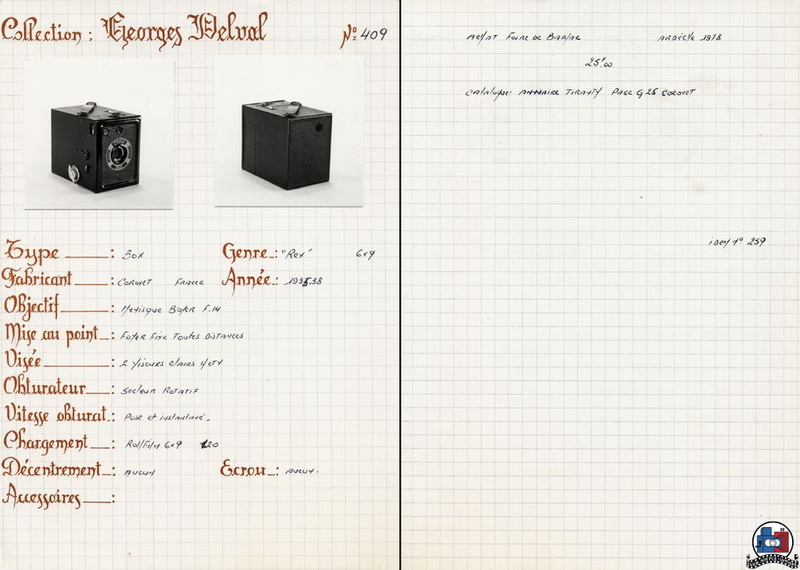 Collection : Georges Delval Nº 409
Type : Box Genre : "Rex" 6x9
Fabricant : Coronet France Année : 1935.38
Objectif : Menisque Boyer F.14
Mise au point : Foyer Fixe Toutes Distances
Visée : 2 viseurs clairs H et V
Obturateur : Secteur Rotatif
Vitesse obturat. : Pose et instantané.
Chargement : Rollfilm 6x9 120
Décentrement : Aucun Ecrou : Aucun.
Accessoires :
Achat Foire de Barjac Ardèche 1978
25f00
Catalogue: Annuaire Tiranty Page G 25 Coronet
idem nº 259